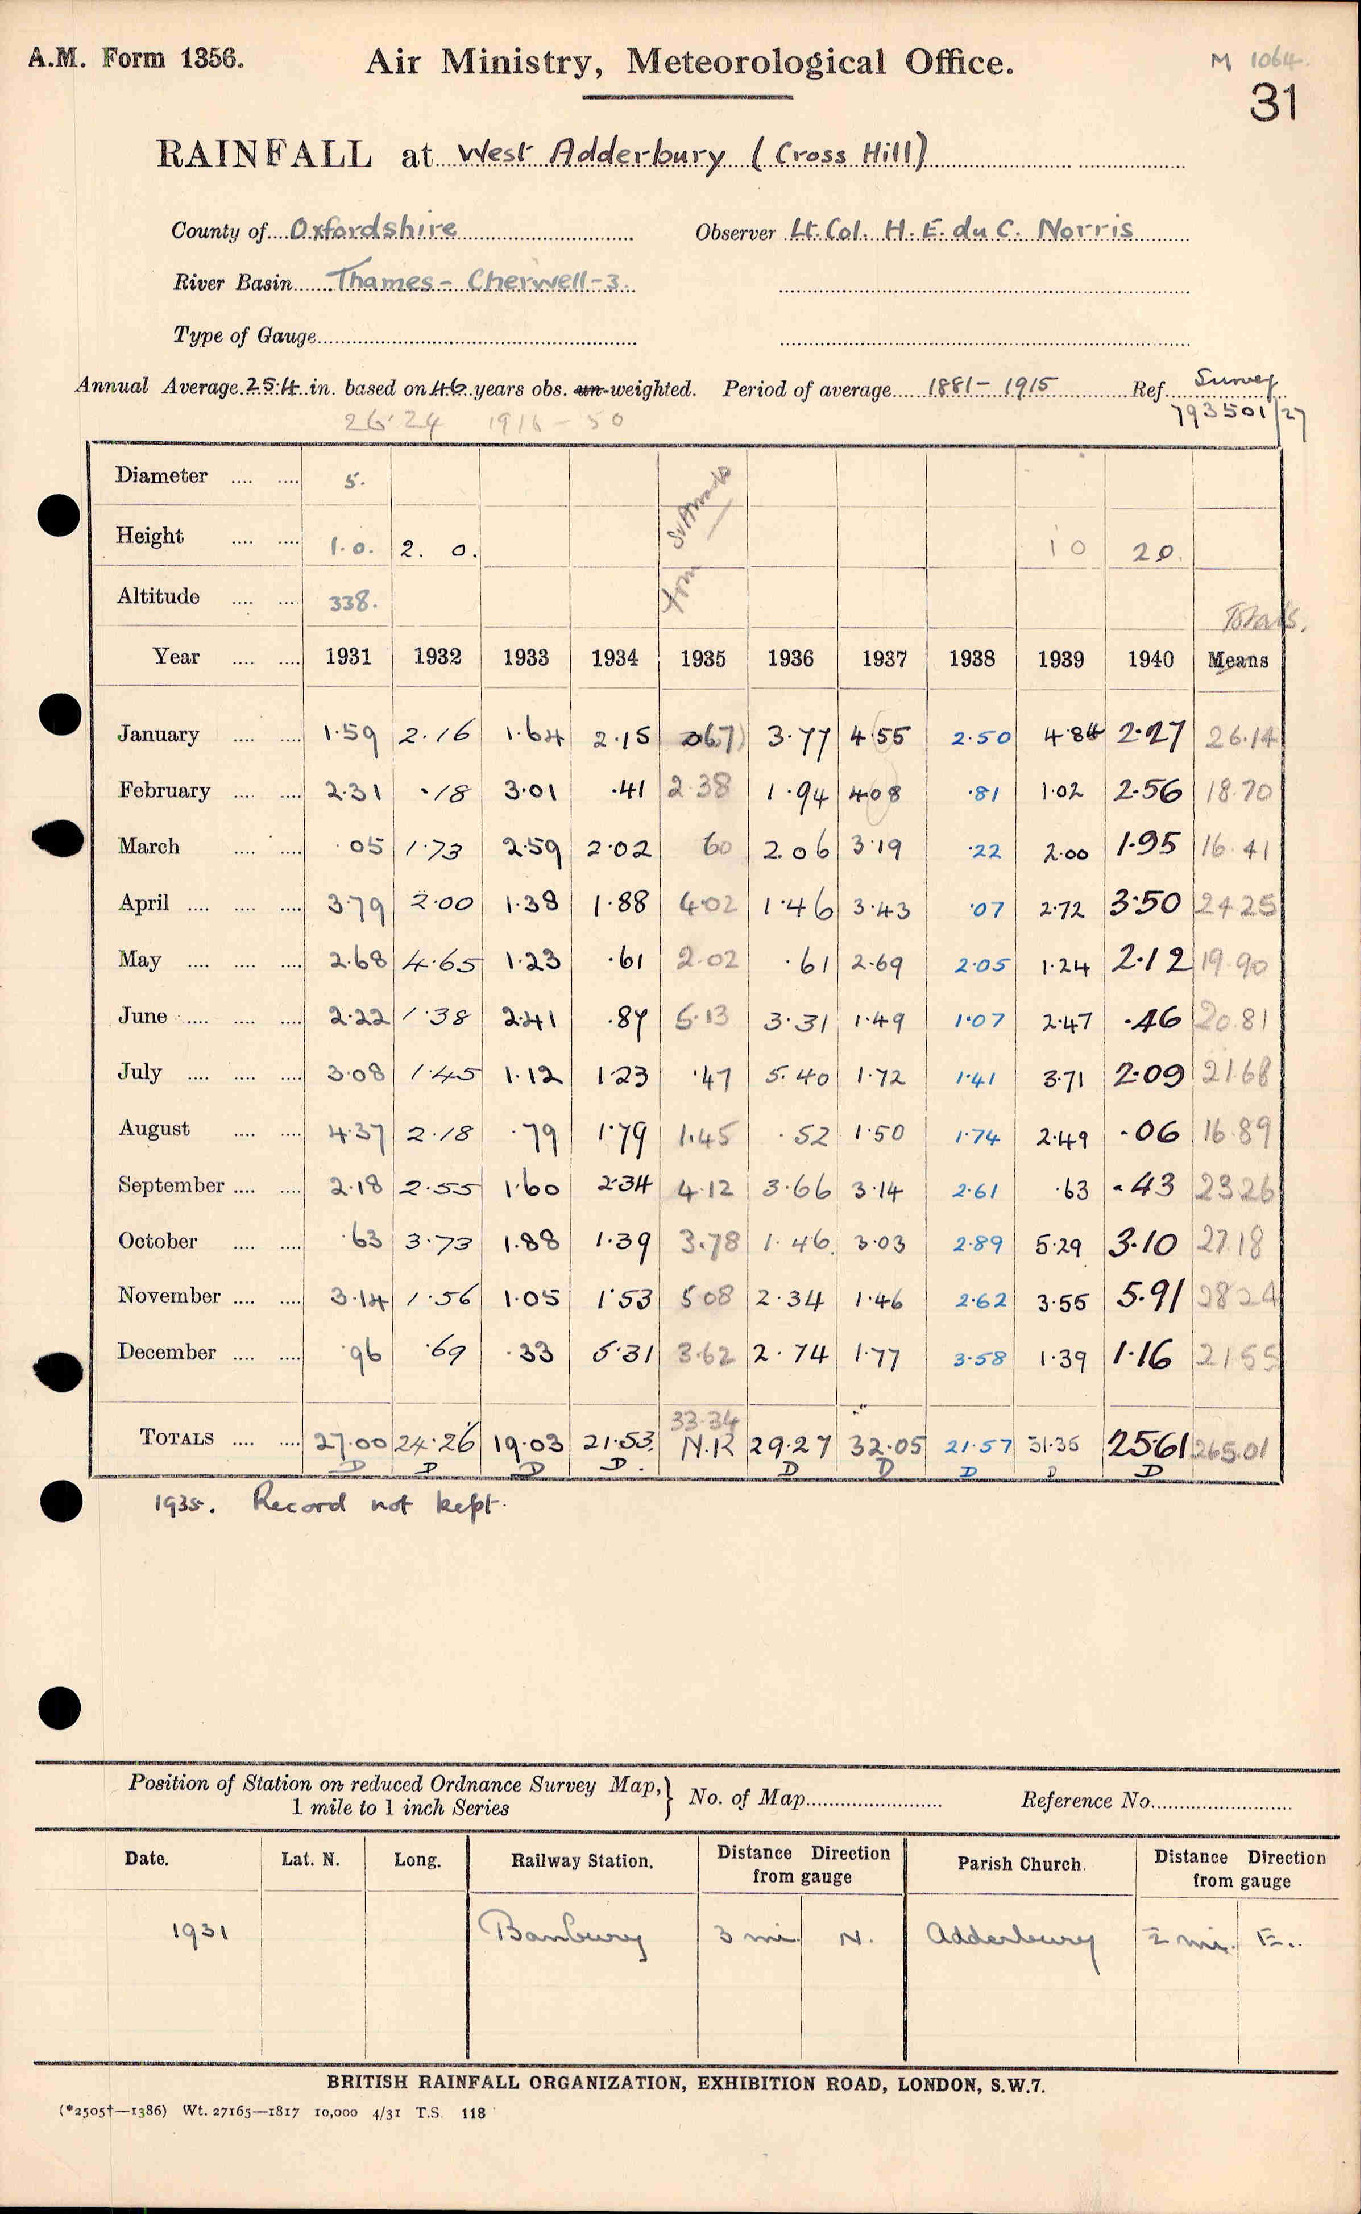 A.M. Form 1356.
Air Ministry, Meteorological Office.
M 1064.
31
RAINFALL at West Adderbury (Cross Hill)
County of Oxfordshire Observer Lt. Col. H. E. du C. Norris
River Basin Thames - Cherwell - 3.
Type of Gauge
Annual Average 25.4 in. based on 46 years obs. un-weighted. Period of average 1881 - 1915 Ref. Survey
26.24 1916 - 50 793501/27
Diameter 5.
Height 1.0. 2. 0. 10 20.
Altitude 338.
from
Totals.
Year 1931 1932 1933 1934 1935 1936 1937 1938 1939 1940 Means
January 1.59 2.16 1.64 2.15 067) 3.77 4.55 2.50 4.84 2.27 26.14
February 2.31 .18 3.01 .41 2.38 1.94 4.08 .81 1.02 2.56 18.70
March .05 1.73 2.59 2.02 60 2.06 3.19 .22 2.00 1.95 16.41
April 3.79 2.00 1.38 1.88 4.02 1.46 3.43 .07 2.72 3.50 24 25
May 2.68 4.65 1.23 .61 2.02 .61 2.69 2.05 1.24 2.12 19.90
June 2.22 1.38 2.41 .87 5.13 3.31 1.49 1.07 2.47 .46 20.81
July 3.08 1.45 1.12 1.23 .47 5.40 1.72 1.41 3.71 2.09 21.68
August 4.37 2.18 .79 1.79 1.45 .52 1.50 1.74 2.49 .06 16.89
September 2.18 2.55 1.60 2.34 4.12 3.66 3.14 2.61 .63 .43 23 26
October .63 3.73 1.88 1.39 3.78 1.46 3.03 2.89 5.29 3.10 27.18
November 3.14 1.56 1.05 1.53 5 08 2.34 1.46 2.62 3.55 5.91 28 24
December .96 .69 .33 5.31 3.62 2.74 1.77 3.58 1.39 1.16 21.55
33.34
TOTALS 27.00 24.26 19.03 21.53 N.R 29.27 32.05 21.57 31.35 25.61 265.01
D D D D D D D D D
1935. Record not kept.
Position of Station on reduced Ordnance Survey Map, } No. of Map Reference No.
1 mile to 1 inch Series
Date. Lat. N. Long. Railway Station. Distance Direction from gauge Parish Church. Distance Direction from gauge
1931 Banbury 3 mi. N. Adderbury ½ mi. E.
BRITISH RAINFALL ORGANIZATION, EXHIBITION ROAD, LONDON, S.W.7.
(*2505†—1386) Wt. 27165—1817 10,000 4/31 T.S. 118